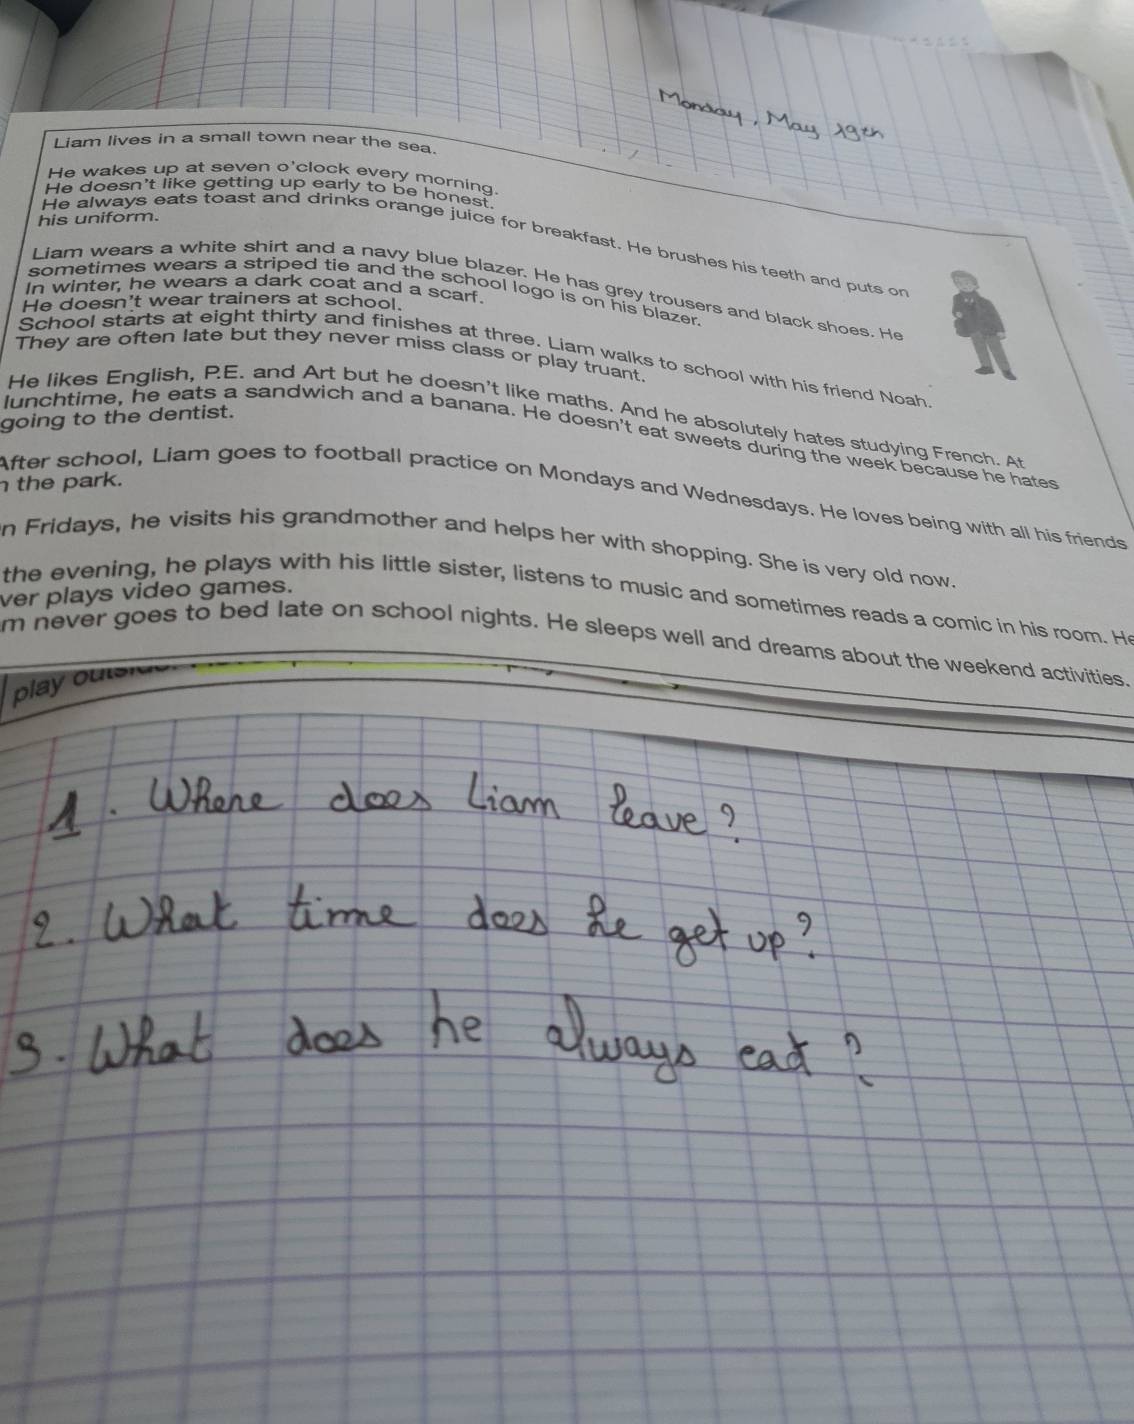 Monday, May 19th
Liam lives in a small town near the sea.
He wakes up at seven o'clock every morning.
He doesn't like getting up early to be honest.
He always eats toast and drinks orange juice for breakfast. He brushes his teeth and puts on
his uniform.
Liam wears a white shirt and a navy blue blazer. He has grey trousers and black shoes. He
sometimes wears a striped tie and the school logo is on his blazer.
In winter, he wears a dark coat and a scarf.
He doesn't wear trainers at school.
School starts at eight thirty and finishes at three. Liam walks to school with his friend Noah.
They are often late but they never miss class or play truant.
He likes English, P.E. and Art but he doesn't like maths. And he absolutely hates studying French. At
lunchtime, he eats a sandwich and a banana. He doesn't eat sweets during the week because he hates
going to the dentist.
After school, Liam goes to football practice on Mondays and Wednesdays. He loves being with all his friends
n the park.
n Fridays, he visits his grandmother and helps her with shopping. She is very old now.
the evening, he plays with his little sister, listens to music and sometimes reads a comic in his room. He
ver plays video games.
m never goes to bed late on school nights. He sleeps well and dreams about the weekend activities.
play outside.
1. Where does Liam leave?
2. What time does he get up?
3. What does he always eat?